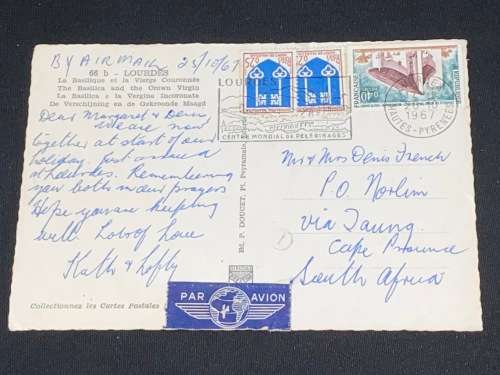 BY AIR MAIL 25/10/67
66 b - LOURDES
La Basilique et la Vierge Couronnée
The Basilica and the Crown Virgin
La Basilica e la Vergine Incoronata
De Verschijning en de Gekroonde Maagd
Dear Margaret & Denis
We are now
together at start of our
holiday. Just arrived
at Lourdes. Remembering
you both in our prayers
Hope you are keeping
well. Lots of love
Kath & Lofty
Collectionnez les Cartes Postales
Ed. P. DOUCET, Pl. Peyramale
LOURDES
CENTRE MONDIAL DE PELERINAGES
0,25
0,25
REPUBLIQUE FRANÇAISE
0,40
1967
HAUTES-PYRENEES
Mr & Mrs Denis French
P.O. Norlim
via Taung
Cape Province
South Africa
PAR AVION